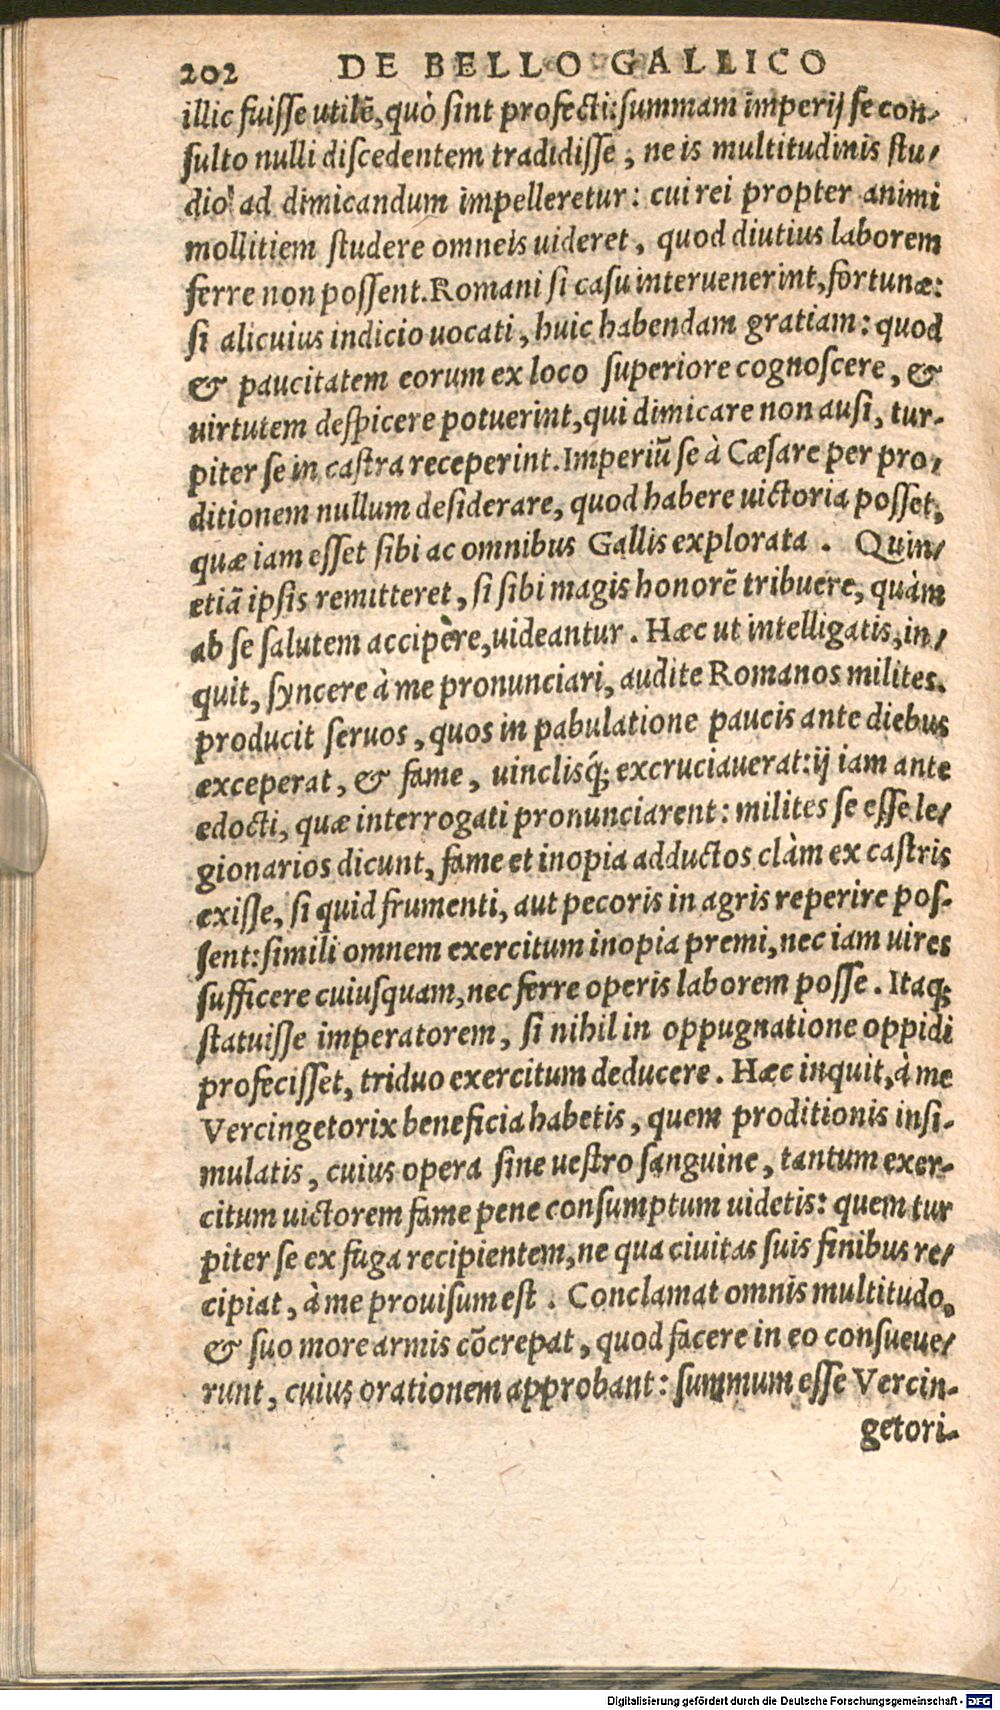 202 DE BELLO GALLICO
illic fuisse utilē, quò sint profecti: summam imperij se con-
sulto nulli discedentem tradidisse, ne is multitudinis stu-
dio ad dimicandum impelleretur: cui rei propter animi
mollitiem studere omneis uideret, quod diutius laborem
ferre non possent. Romani si casu interuenerint, fortunæ:
si alicuius indicio uocati, huic habendam gratiam: quod
& paucitatem eorum ex loco superiore cognoscere, &
uirtutem despicere potuerint, qui dimicare non ausi, tur-
piter se in castra receperint. Imperiū se à Cæsare per pro-
ditionem nullum desiderare, quod habere uictoria posset,
quæ iam esset sibi ac omnibus Gallis explorata. Quin-
etiā ipsis remitteret, si sibi magis honorē tribuere, quàm
ab se salutem accipère, uideantur. Hæc ut intelligatis, in-
quit, syncere à me pronunciari, audite Romanos milites.
producit seruos, quos in pabulatione paucis ante diebus
exceperat, & fame, uinclisq́; excruciauerat: ij iam ante
edocti, quæ interrogati pronunciarent: milites se esse le-
gionarios dicunt, fame et inopia adductos clàm ex castris
exisse, si quid frumenti, aut pecoris in agris reperire pos-
sent: simili omnem exercitum inopia premi, nec iam uires
sufficere cuiusquam, nec ferre operis laborem posse. Itaq;
statuisse imperatorem, si nihil in oppugnatione oppidi
profecisset, triduo exercitum deducere. Hæc inquit, à me
Vercingetorix beneficia habetis, quem proditionis insi-
mulatis, cuius opera sine uestro sanguine, tantum exer-
citum uictorem fame pene consumptum uidetis: quem tur
piter se ex fuga recipientem, ne qua ciuitas suis finibus re-
cipiat, à me prouisum est. Conclamat omnis multitudo,
& suo more armis cōcrepat, quod facere in eo consueue-
runt, cuius orationem approbant: summum esse Vercin-
getori-
Digitalisierung gefördert durch die Deutsche Forschungsgemeinschaft - DFG